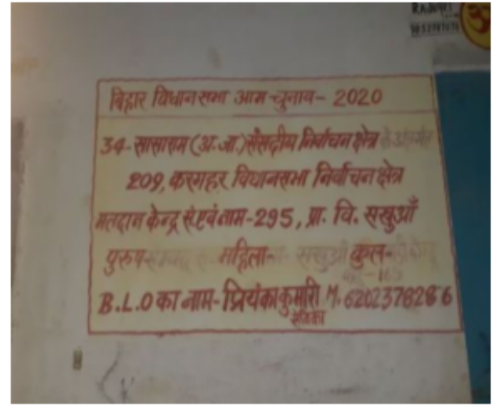 RAJPUT
बिहार विधान सभा आम चुनाव - 2020
34-सासाराम (अ.जा.) संसदीय निर्वाचन क्षेत्र के अंतर्गत
209, करगहर विधानसभा निर्वाचन क्षेत्र
मतदान केन्द्र सं. एवं नाम-295, प्रा. वि. सखुआँ
पुरुष महिला- सखुआँ कुल-
B.L.O का नाम- प्रियंका कुमारी M. 6202378286
सेविका